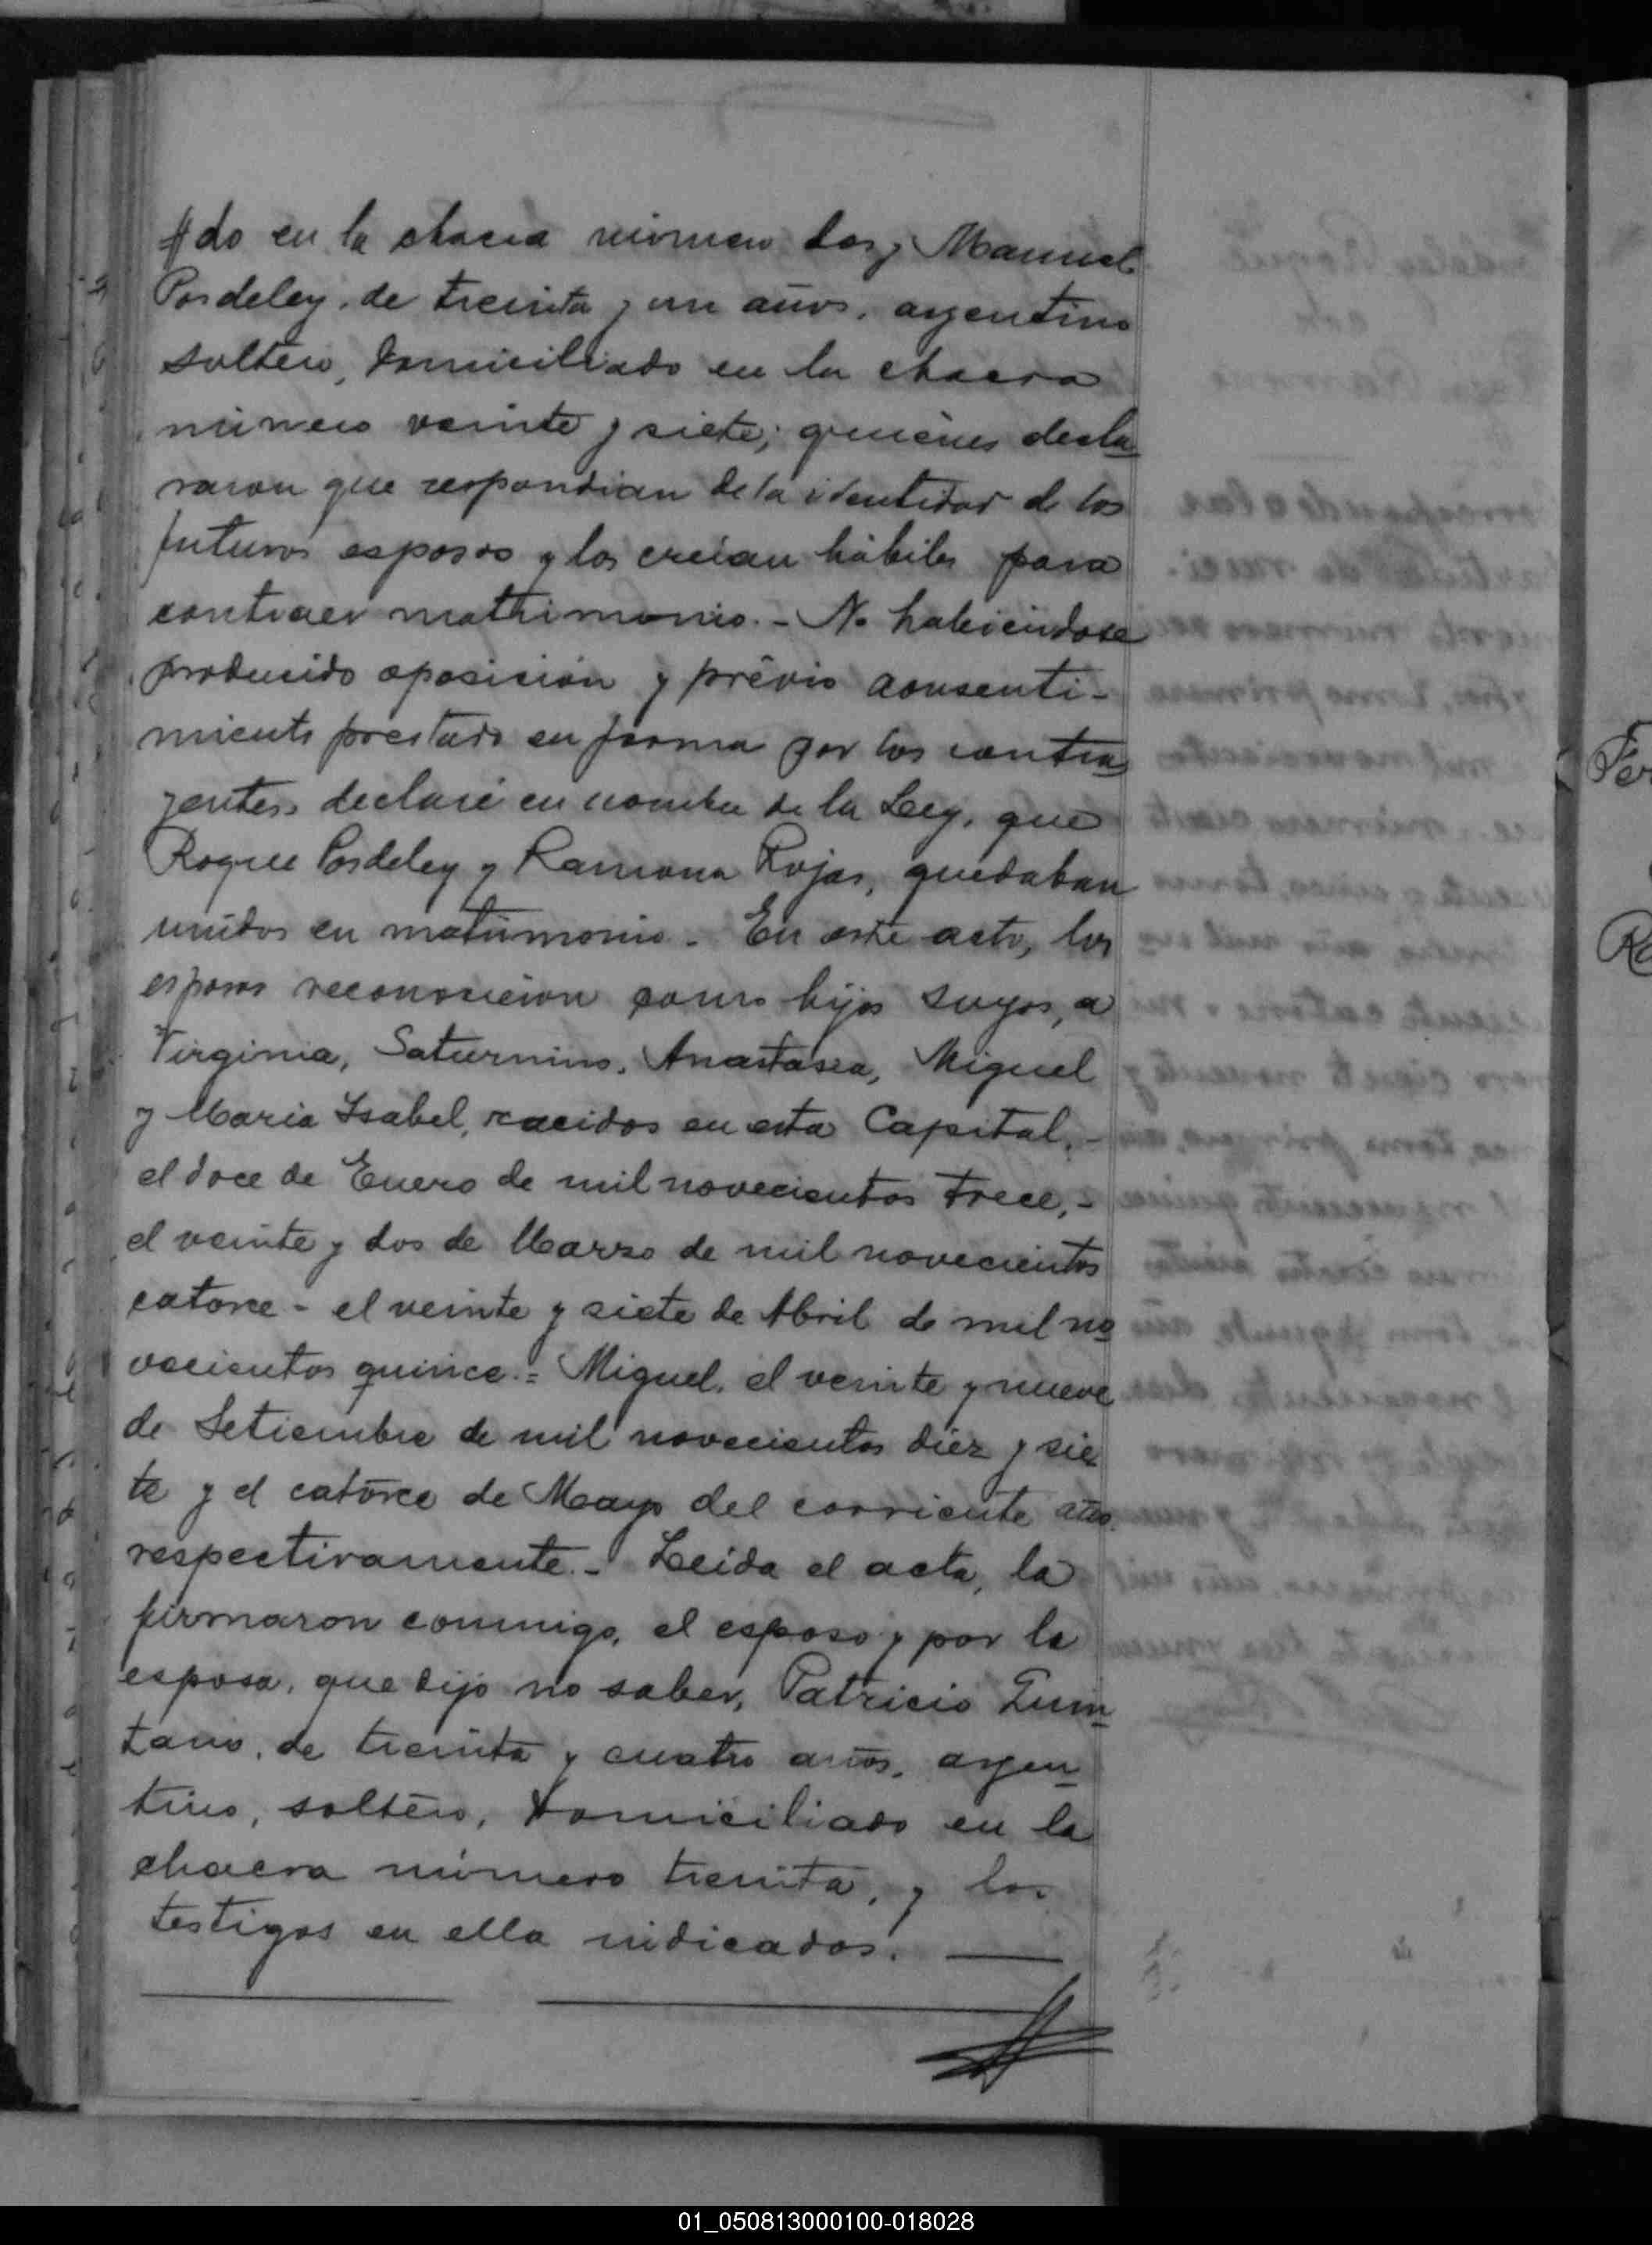 do en la chacra número dos y Manuel
Pordeley, de treinta y un años, argentino
soltero, domiciliado en la chacra
número veinte y siete; quiénes decla
raron que respondian de la identidad de los
futuros esposos y los creian hábiles para
contraer matrimonio.- No habiéndose
producido oposición y prévio consenti-
miento prestado en forma por los contra
yentes, declaré en nombre de la Ley, que
Roque Pordeley y Ramona Rojas, quedaban
unidos en matrimonio. En este acto, los
esposos reconocieron como hijos suyos, a
Virginia, Saturnino, Anastasia, Miguel
y Maria Isabel, nacidos en esta Capital,-
el doce de Enero de mil novecientos trece,-
el veinte y dos de Marzo de mil novecientos
catorce - el veinte y siete de Abril de mil no
vecientos quince.= Miguel, el veinte y nueve
de Setiembre de mil novecientos diez y sie
te y el catorce de Mayo del corriente año
respectivamente.- Leida el acta, la
firmaron conmigo, el esposo y por la
esposa, que dijo no saber, Patricio Quin
tano, de treinta y cuatro años, argen
tino, soltero, domiciliado en la
chacra número treinta, y los
testigos en ella indicados.
Fer
Ro
01_050813000100-018028